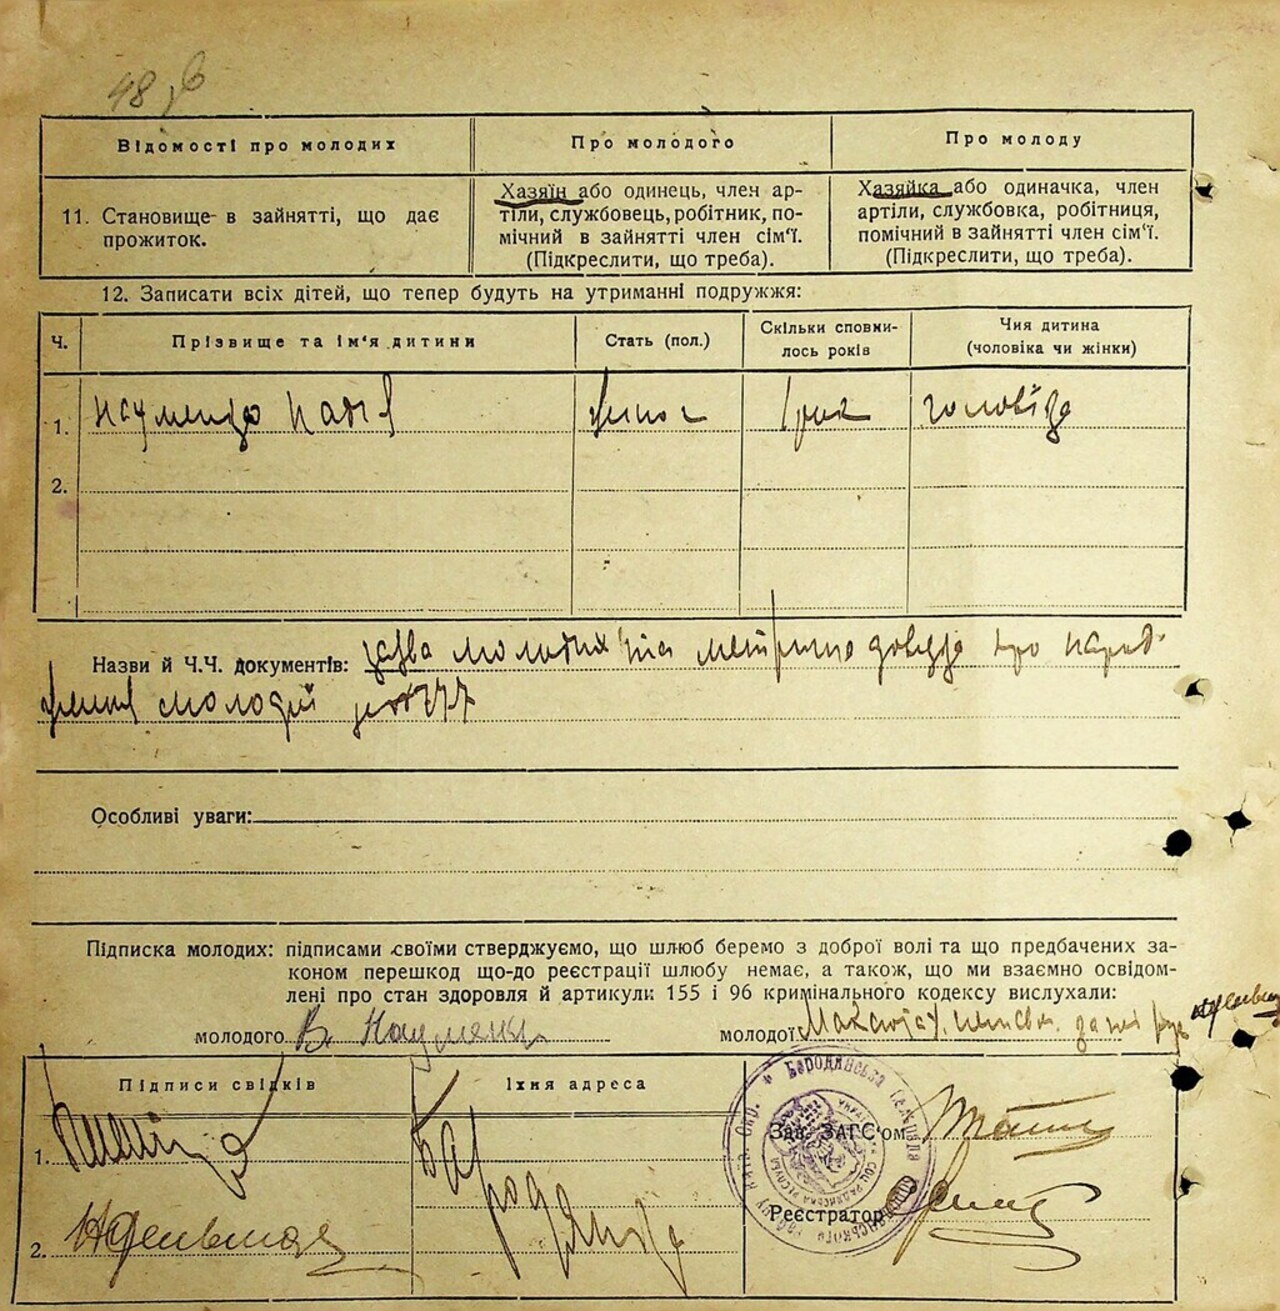 48
Відомості про молодих
Про молодого
Про молоду
11. Становище в зайнятті, що дає
прожиток.
Хазяїн або одинець, член ар-
тіли, службовець, робітник, по-
мічний в зайнятті член сім'ї.
(Підкреслити, що треба).
Хазяйка або одиначка, член
артіли, службовка, робітниця,
помічний в зайнятті член сім'ї.
(Підкреслити, що треба).
12. Записати всіх дітей, що тепер будуть на утриманні подружжя:
Ч.
Прізвище та ім'я дитини
Стать (пол.)
Скільки сповни-
лось років
Чия дитина
(чоловіка чи жінки)
1. Науменко Надія
1 рік
чоловіка
2.
Назви й Ч.Ч. документів: заява молодих метрична довідка про народ-
ження молодої
Особливі уваги:
Підписка молодих: підписами своїми стверджуємо, що шлюб беремо з доброї волі та що предбачених за-
коном перешкод що-до реєстрації шлюбу немає, а також, що ми взаємно освідом-
лені про стан здоровля й артикули 155 і 96 кримінального кодексу вислухали:
молодого В. Науменко
молодої
Підписи свідків
Їхня адреса
1.
2.
Бородянка
Зав. ЗАГС'ом
Реєстратор
Бородянська